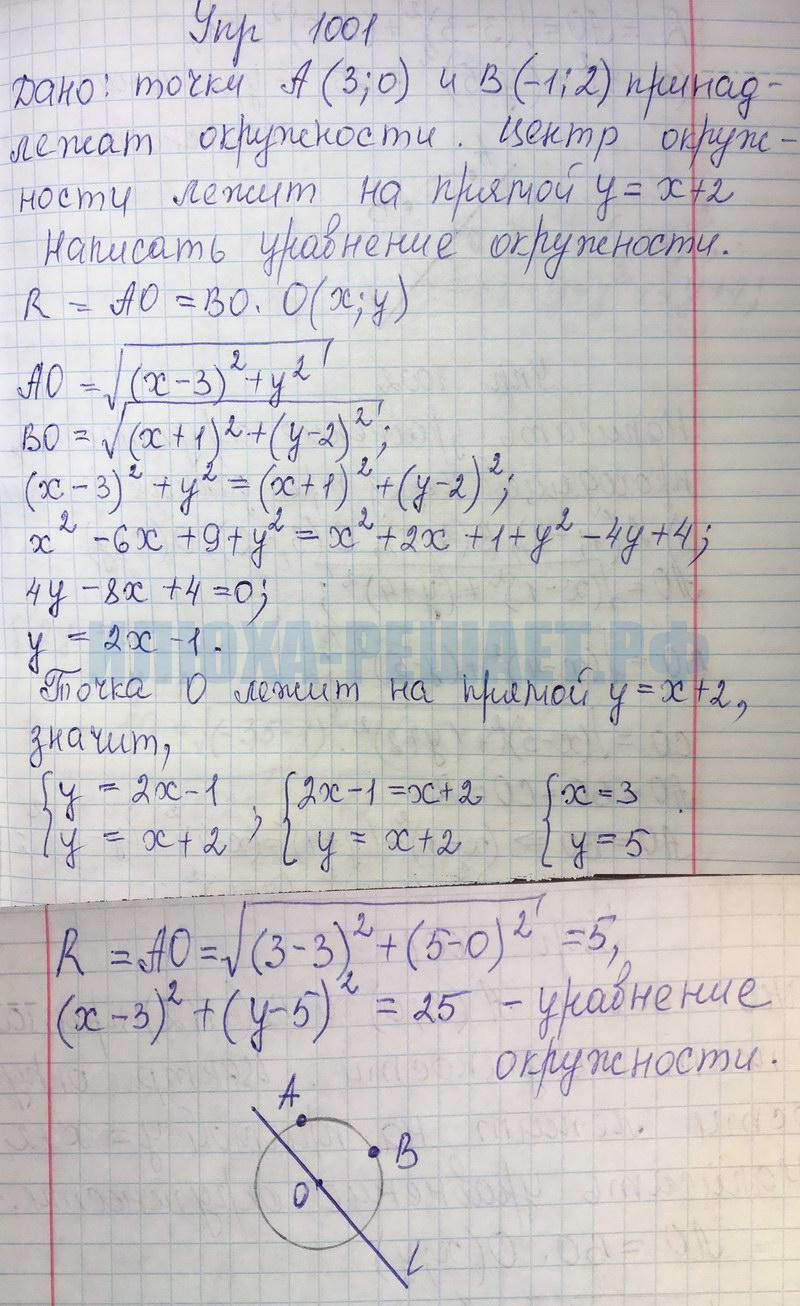 Упр 1001
Дано: точки А (3;0) и В (-1;2) принад-
лежат окружности. Центр окруж-
ности лежит на прямой y = x+2
Написать уравнение окружности.
R = АО = ВО. О(x;y)
АО = √((x-3)² + y²)
ВО = √((x+1)² + (y-2)²);
(x-3)² + y² = (x+1)² + (y-2)²;
x² - 6x + 9 + y² = x² + 2x + 1 + y² - 4y + 4;
4y - 8x + 4 = 0;
y = 2x - 1.
ИЛЮХА-РЕШАЕТ.РФ
Точка О лежит на прямой y = x+2,
значит,
{ y = 2x-1 ; { 2x-1 = x+2 { x = 3
{ y = x+2 { y = x+2 { y = 5
R = АО = √((3-3)² + (5-0)²) = 5,
(x-3)² + (y-5)² = 25 - уравнение
окружности.
А
В
О